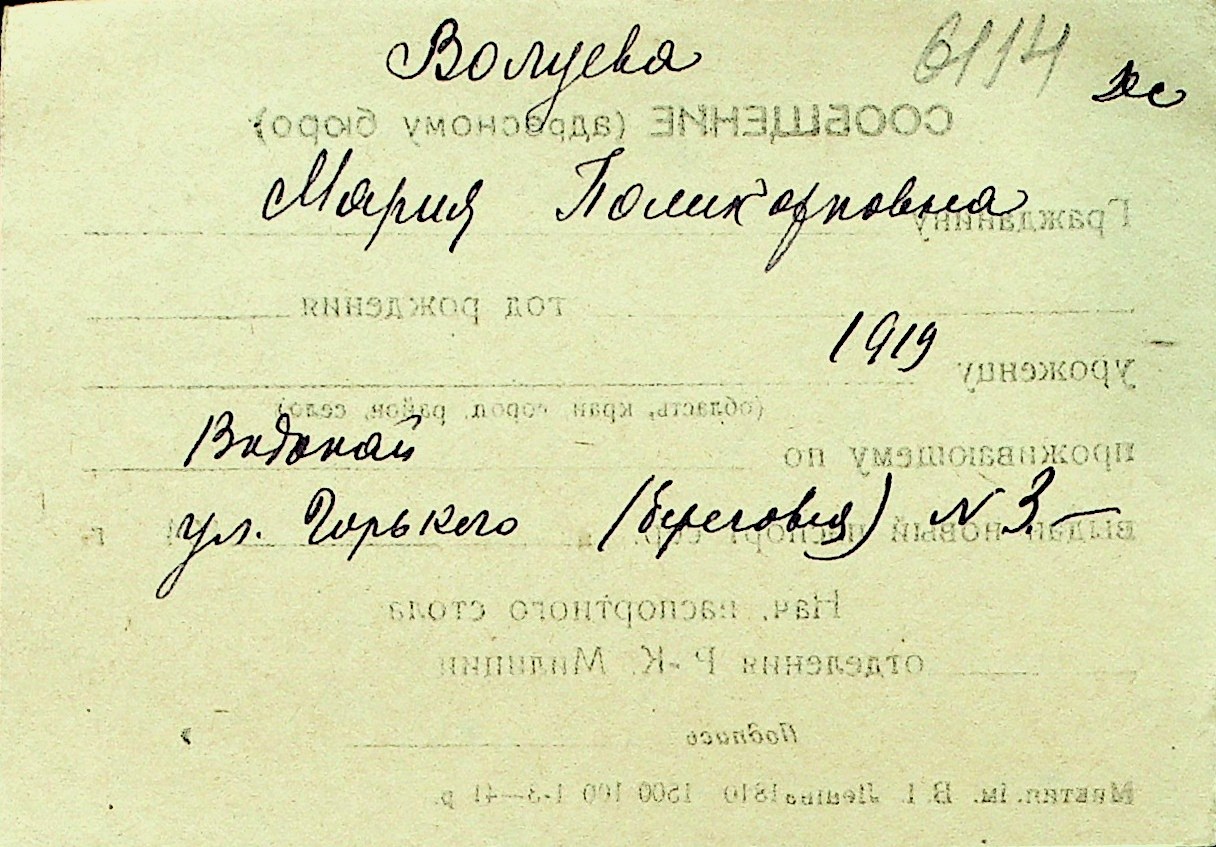 Волуева 6114
СООБЩЕНИЕ (адресному бюро)
Мария Поликарповна
Гражданину
год рождения
1919
уроженцу
(область, край город, район, село)
Водокай
проживающему по
ул. Горького (береговая) N 3
выдан новый паспорт сер. г.
Нач. паспортного стола
отделения Р.-К. Милиции
Подпись
1500 100 1-3-41 р.